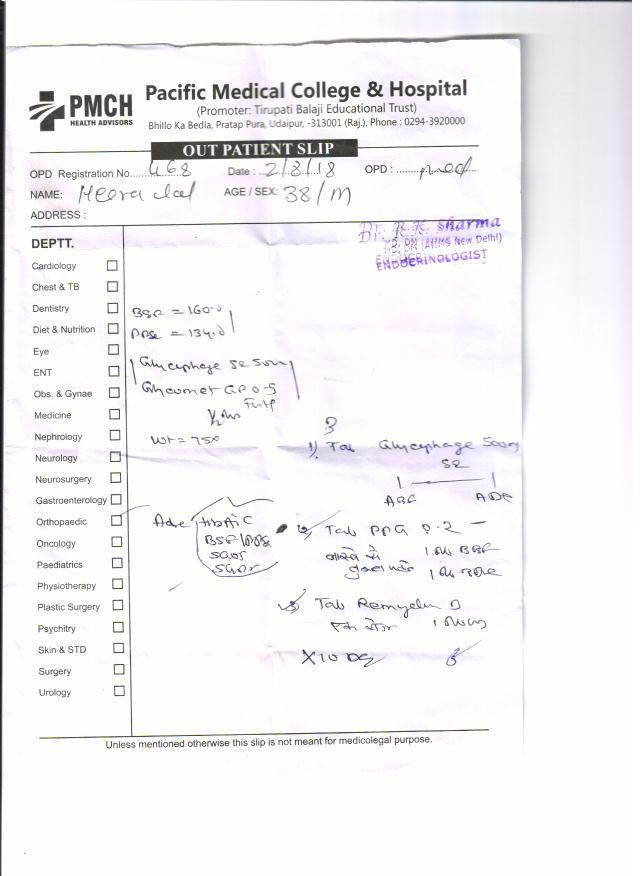 PMCH
HEALTH ADVISORS
Pacific Medical College & Hospital
(Promoter: Tirupati Balaji Educational Trust)
Bhillo Ka Bedla, Pratap Pura, Udaipur, -313001 (Raj.), Phone : 0294-3920000
OUT PATIENT SLIP
OPD Registration No. 468 Date : 2/8/18 OPD : med
NAME: Heera Lal AGE / SEX: 38/M
ADDRESS :
Dr. R.K. Sharma
MD, DM (AIIMS New Delhi)
ENDOCRINOLOGIST
DEPTT.
Cardiology
Chest & TB
Dentistry
Diet & Nutrition
Eye
ENT
Obs. & Gynae
Medicine
Nephrology
Neurology
Neurosurgery
Gastroenterology
Orthopaedic
Oncology
Paediatrics
Physiotherapy
Plastic Surgery
Psychitry
Skin & STD
Surgery
Urology
= 160.0
= 134.0
Glycyphage SR 500
GP 0.5
Wt = 75
Adv HbA1C
SGOT
SGPT
1) Tab Glycyphage 500mg
SR
1 1
ABF
2) Tab PPG 0.2
1 BBF
1
3) Tab Remylin D
X 10
Unless mentioned otherwise this slip is not meant for medicolegal purpose.